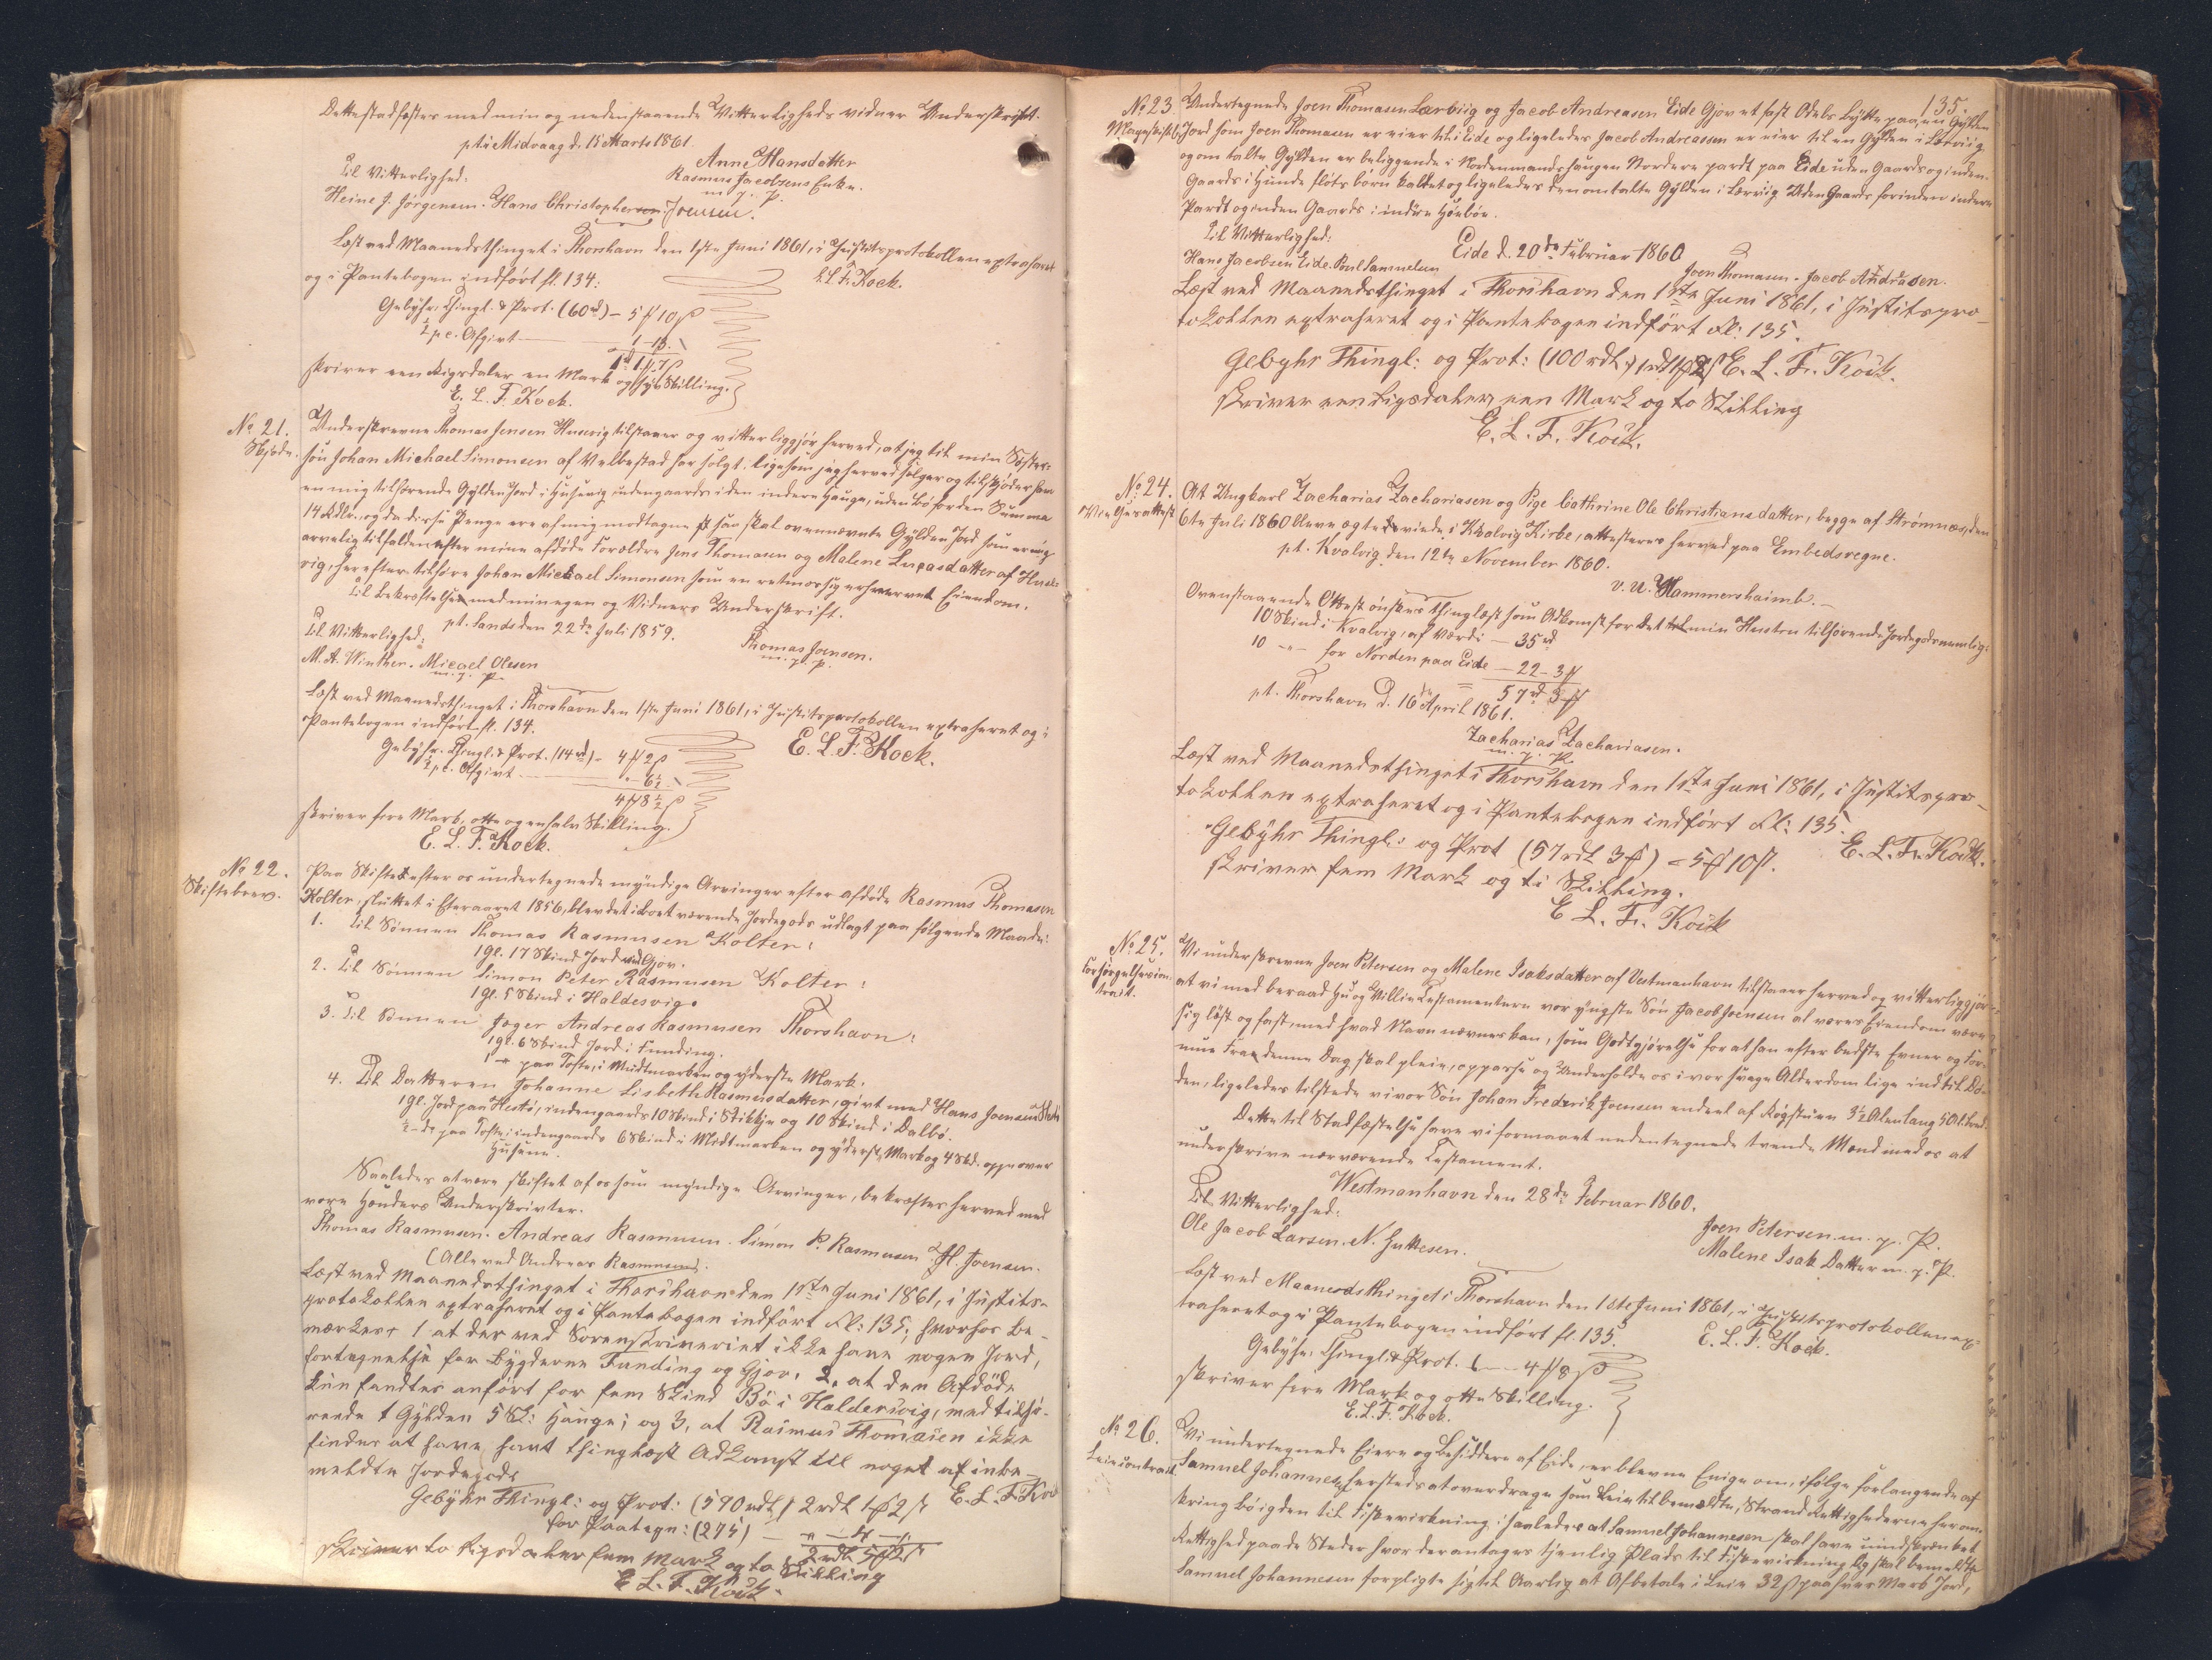 Dette stadfæstes med min og nedenstaaende Vitterligheds vidner Underskrift.
pt. i Midvaag d. 15 Marts 1861
Anne Hansdatter
Til Vitterlighed:
Rasmus Jacobsens Enke.
m. p. P.
Heine J. Jørgensen. Hans Christophersen Joensen.
Læst ved Maanedsthinget i Thorshavn den 1ste Juni 1861, i Justitsprotokollen extraheret
og i Pantebogen indført fl. 134:
E. L. F. Kock.
Gebyhr. Thingl. & Prot. (60 rd) - 5 ℳ 10 ß
½ pc. Afgivt
1 rd 1 ℳ 7 ß
skriver een Rigsdaler en Mark og syv Skilling.
E. L. F. Kock.
No 21.
Skjøde.
Underskrevne Thomas Jensen Husevig tilstaaer og vitterliggjør herved, at jeg til min Søster-
søn Johan Michael Simonsen af Velbestad har solgt, ligesom jeg herved sælger og tilskjøder ham
en mig tilhørende Gylden Jord i Husevig indengaards i den indere Hauge, uden Bø for den Summa
14 Rdlr., og da disse Penge ere af mig modtagne saa skal ovennævnte Gylden Jord som er mig
arvelig tilfalden efter mine afdøde Forældre Jens Thomasen og Malene Lucasdatter af Huse-
vig, herefter tilhøre Johan Michael Simonsen som en retmæssig erhvervet Eiendom.
Til Bekræftelse med min egen og Vidners Underskrift.
pt. Sand den 22de Juli 1859.
Til Vitterlighed:
Thomas Joensen.
m. p. P.
M. A. Winther. Micael Olesen
m. p. P.
Læst ved Maanedsthinget i Thorshavn den 1ste Juni 1861, i Justitsprotokollen extraheret og i
Pantebogen indført fl. 134.
E. L. F. Kock.
Gebyhr. Thingl. & Prot. (14 rd) - 4 ℳ 2 ß
½ pc. Afgivt - " - 6½
4 ℳ 8½ ß
skriver fire Mark, otte og en halv Skilling.
E. L. F. Kock.
No 22.
Skiftebrev.
Paa Skiftet efter os undertegnede myndige Arvinger efter afdøde Rasmus Thomasen
Kolter, sluttet i Efteraaret 1856, blev det i Boet værende Jordegods udlagt paa følgende Maade:
1. Til Sønnen Thomas Rasmusen Kolter:
1 gl. 17 Skind Jord ved Gjov.
2. Til Sønnen Simon Peter Rasmusen Kolter:
1 gl. 5 Skind i Haldesvig.
3. Til Sønnen Jæger Andreas Rasmusen Thorshavn:
1 gl. 6 Skind Jord i Funding.
1 " paa Tofte, i Midtmarken og yderste Mark.
4. Til Datteren Johanne Lisbeth Rasmusdatter, givt med Hans Joensen
1 gl. Jord paa Hestø, indengaards 10 Skind i Stikkje og 10 Skind i Dalbø.
½ - do paa Tofte; indengaards 6 Skind i Midtmarken og yderste Mark og 4 Skd. oppe over
Husene.
Saaledes at være skiftet af os som myndige Arvinger, bekræftes herved med
vore Hænders Underskrivter.
Thomas Rasmusen. Andreas Rasmusen. Simon P. Rasmusen. H. Joensen.
(Alle ved Andreas Rasmusen).
Læst ved Maanedsthinget i Thorshavn den 1ste Juni 1861, i Justits-
protokollen extraheret og i Pantebogen indført Fl: 135; hvorhos be-
mærkes: 1 at der ved Sorenskriveriet ikke have nogen Jord,
fortegnelse for Bygderne Funding og Gjov, 2, at den Afdøde
kun fandtes anført for fem Skind Bø i Haldersvig, med tilhø-
rende 1 Gylden 5 Sk: Hauge; og 3, at Rasmus Thomasen ikke
findes at have havt thinglæst Adkomst til noget af inbe-
meldte Jordegods
E. L. F. Kock
Gebyhr Thingl: og Prot: (570 rdl) 2 rdl 1 ℳ 2 ß
for Paategn: (275) - " - 4 - "
2 rdl 5 ℳ 2 ß
skriver to Rigsdaler fem Mark og to Skilling
E. L. F. Kock.
135.
No 23
Mageskifte
Undertegnede Joen Thomasen Lærviig og Jacob Andreasen Eide Gjør et fast Odels bytte paa, en Gylden
Jord som Joen Thomasen er eier til i Eide og ligeledes Jacob Andreassen er eier til en Gylden i Lærviig
og om talte Gylden er beliggende i Nordenmandshaugen Nordere pardt paa Eide uden Gaards og inden-
Gaards i Hunde sløts børn kaldet og ligeledes den omtalte Gylden i Lærvig Uden Gaards for inden indere
Pardt og inden Gaards i indere Heebøe.
Til Vitterlighed:
Eide d. 20de Februar 1860
Hans Jacobsen Eide. Poul Samuelsen
Joen Thomasen. Jacob Andrasen.
Læst ved Maanedsthinget i Thorshavn den 1ste Juni 1861, i Justitspro-
tokollen extraheret og i Pantebogen indført Fl: 135.
Gebyhr Thingl: og Prot: (100 rdl) 1 rdl 1 ℳ 2 ß E. L. F. Kock.
skriver een Rigsdaler, een Mark og to Skilling
E. L. F. Kock.
No 24.
Vielsesattest
At Ungkarl Zacharias Zachariasen og Pige Cathrine Ole Christiansdatter, begge af Strømnæs, den
6te Juli 1860 bleve ægteviede i Kvalvig Kirke, attesteres herved paa Embedsvegne.
pt. Kvalvig den 12te November 1860.
V. U. Hammershaimb.
Ovenstaaende Attest ønskes thinglæst som Adkomst for det min Hustru tilhørende Jordegods nemlig:
10 Skind i Kvalvig, af Værdi — 35 rd
10 -"- for Norden paa Eide — 22 - 3 ℳ
57 rd 3 ℳ
pt. Thorshavn d. 16de April 1861.
Zacharias Zachariasen.
m. p. P.
Læst ved Maanedsthinget i Thorshavn den 1ste Juni 1861, i Justitspro-
tokollen extraheret og i Pantebogen indført Fl: 135.
E. L. F. Kock.
Gebyhr Thingl: og Prot (57 rdl 3 ℳ) = 5 ℳ 10 ß.
skriver fem Mark og ti Skilling.
E. L. F. Kock
No 25.
Forsørgelsescon-
trait.
Vi underskrevne Joen Petersen og Malene Isaksdatter af Vestmanhavn tilstaaer herved og vitterliggjør
at vi med beraad Hu og Villie Testamentere vor yngste Søn Jacob Joensen al vores Eiendom være
sig løst og fast, med hvad Navn nævnes kan, som Godtgjørelse for at han efter bedste Evner og For-
mue Fra denne Dag, skal pleie, opparsse og Underholde os i vor svage Alderdom lige indtil Dø-
den, ligeledes tilstede vi vor Søn Johan Frederik Joensen endeel af Røgstuen 3½ Alen lang 5 Al. bred.
Dette til Stadfæstelse have vi formaaet nedentegnede tvende Mænd med os at
underskrive nærværende Testament.
Westmanhavn den 28de Februar 1860.
Til Vitterlighed:
Joen Petersen m. p. P.
Ole Jacob Larsen. N. Guttesen.
Malene Isak Datter m. p. P.
Læst ved Maanedsthinget i Thorshavn den 1ste Juni 1861, i Justitsprotokollen ex-
traheret og i Pantebogen indført fl. 135.
E. L. F. Kock.
Gebyhr: Thingl. & Prot. - - 4 ℳ 8 ß
skriver fire Mark og otte Skilling.
E. L. F. Kock.
No 26.
Leiecontract
Vi undertegnede Eiere og Besiddere af Eide, er blevne Enige om, ifølge forlangende af
Samuel Johannesen hersteds at overdrage som Leie til bemeldte, Strand Rettighederne herom-
kring Bøigden til Fiskevirkning; saaledes at Samuel Johannesen skal have uindskrænket
Rettighed paa de Steder hvor der antages tjenlig Plads til Fiskevirkning Og skal bemeldte
Samuel Johannesen forpligte sig til Aarlig at Afbetale i Leie 32 ß paa hver Mark Jord,